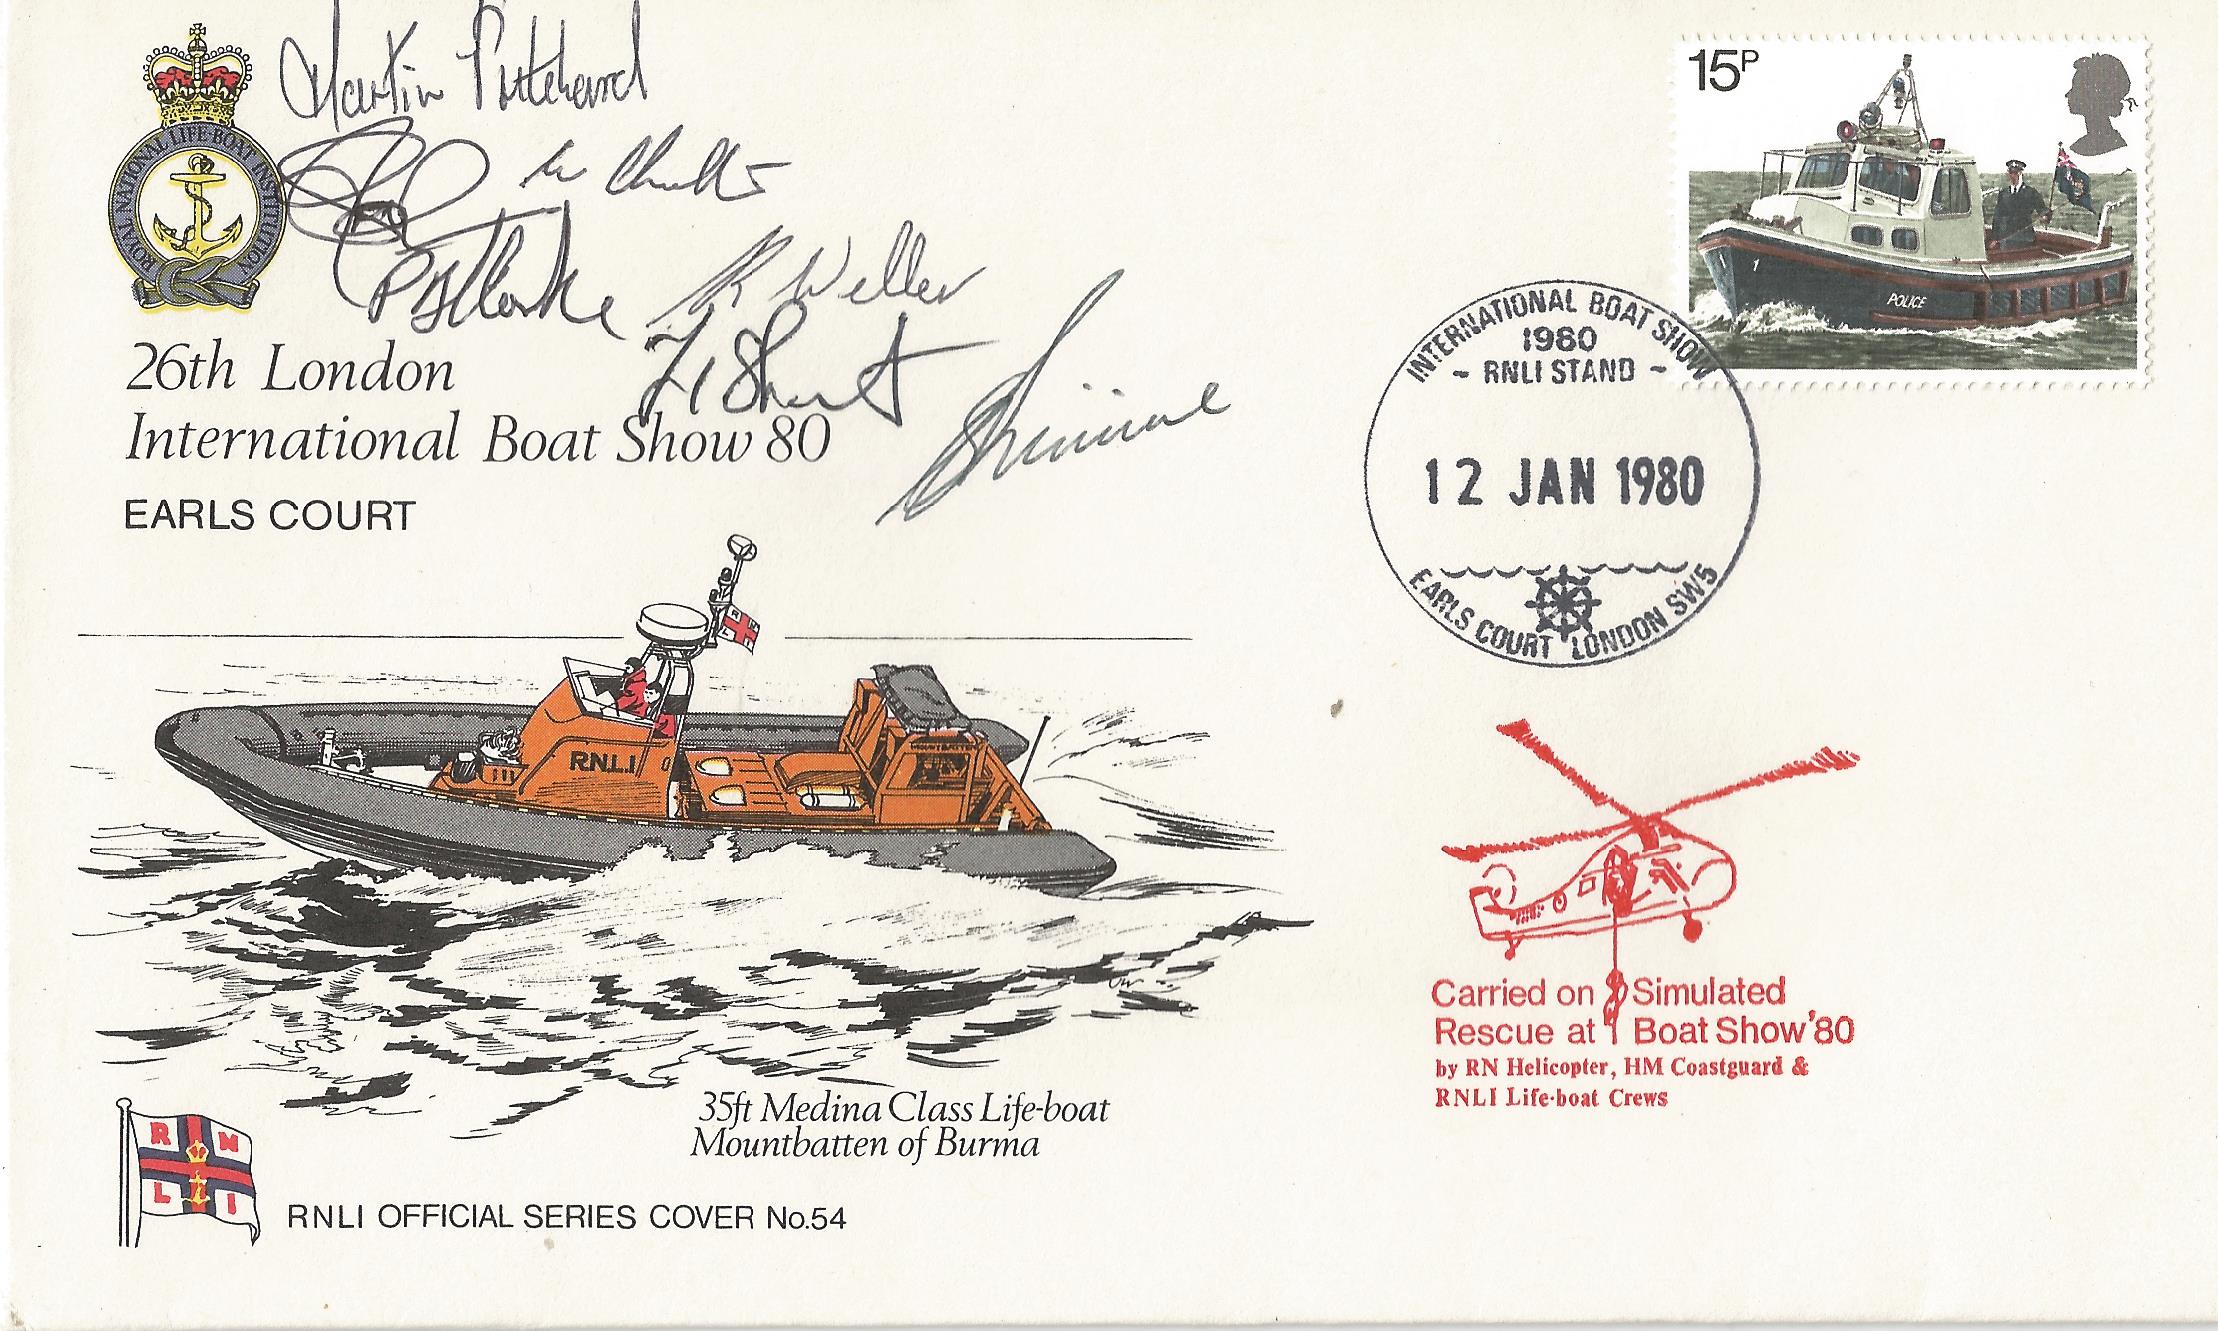 ROYAL NATIONAL LIFE BOAT INSTITUTION
Martin Pritchard
R Weller
26th London
International Boat Show 80
EARLS COURT
15P
POLICE
1
INTERNATIONAL BOAT SHOW
1980
- RNLI STAND -
12 JAN 1980
EARLS COURT LONDON SW5
RNLI
35ft Medina Class Life-boat
Mountbatten of Burma
Carried on Simulated
Rescue at Boat Show '80
by RN Helicopter, HM Coastguard &
RNLI Life-boat Crews
R N
L I
RNLI OFFICIAL SERIES COVER No.54